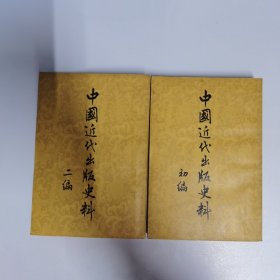 中國近代出版史料
二編
中國近代出版史料
初編